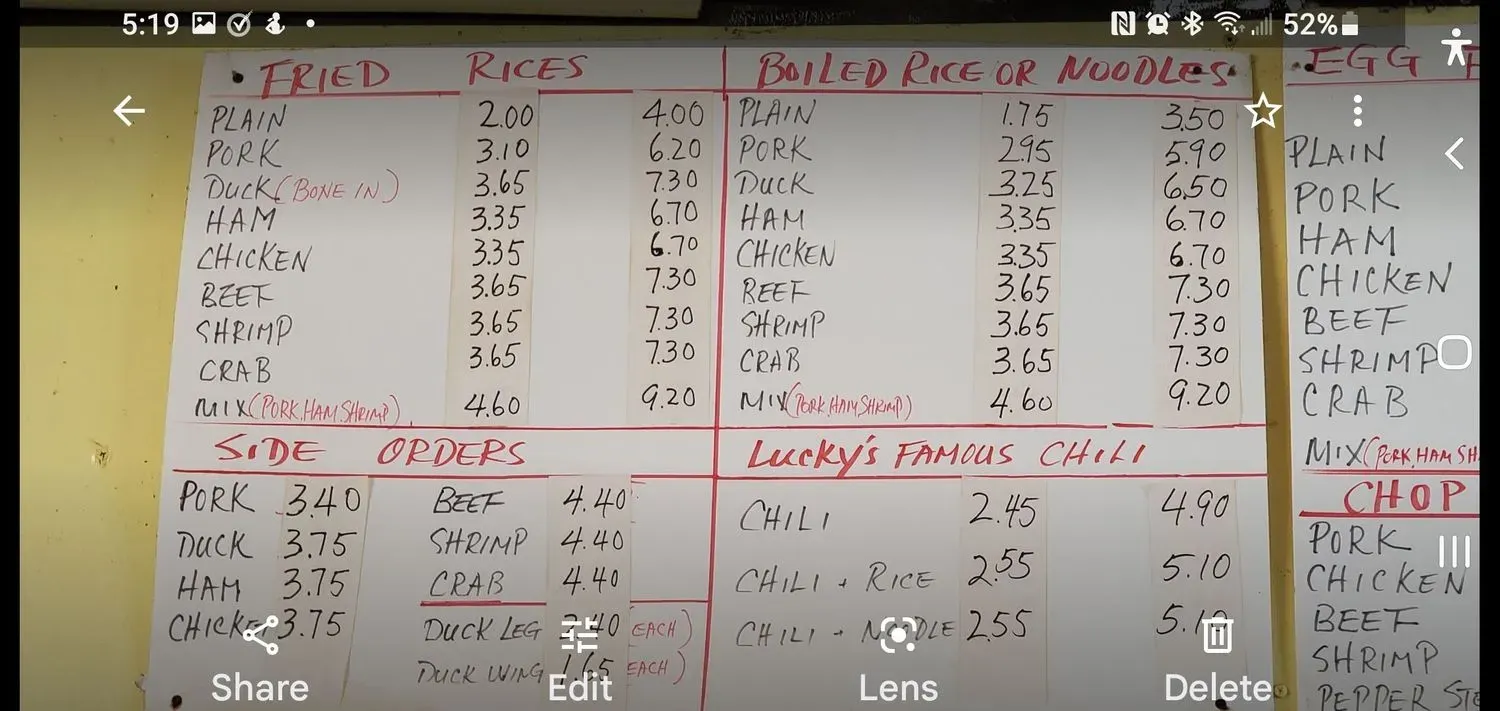 5:19 52%
FRIED RICES
PLAIN 2.00 4.00
PORK 3.10 6.20
DUCK (BONE IN) 3.65 7.30
HAM 3.35 6.70
CHICKEN 3.35 6.70
BEEF 3.65 7.30
SHRIMP 3.65 7.30
CRAB 3.65 7.30
MIX (PORK, HAM, SHRIMP) 4.60 9.20
BOILED RICE OR NOODLES
PLAIN 1.75 3.50
PORK 2.95 5.90
DUCK 3.25 6.50
HAM 3.35 6.70
CHICKEN 3.35 6.70
BEEF 3.65 7.30
SHRIMP 3.65 7.30
CRAB 3.65 7.30
MIX (PORK, HAM, SHRIMP) 4.60 9.20
SIDE ORDERS
PORK 3.40
DUCK 3.75
HAM 3.75
CHICKEN 3.75
BEEF 4.40
SHRIMP 4.40
CRAB 4.40
DUCK LEG (EACH)
DUCK WING 1.65 (EACH)
LUCKY'S FAMOUS CHILI
CHILI 2.45 4.90
CHILI + RICE 2.55 5.10
CHILI + NOODLE 2.55 5.10
EGG
PLAIN
PORK
HAM
CHICKEN
BEEF
SHRIMP
CRAB
MIX (PORK, HAM SH
CHOP
PORK
CHICKEN
BEEF
SHRIMP
PEPPER STE
Share Edit Lens Delete